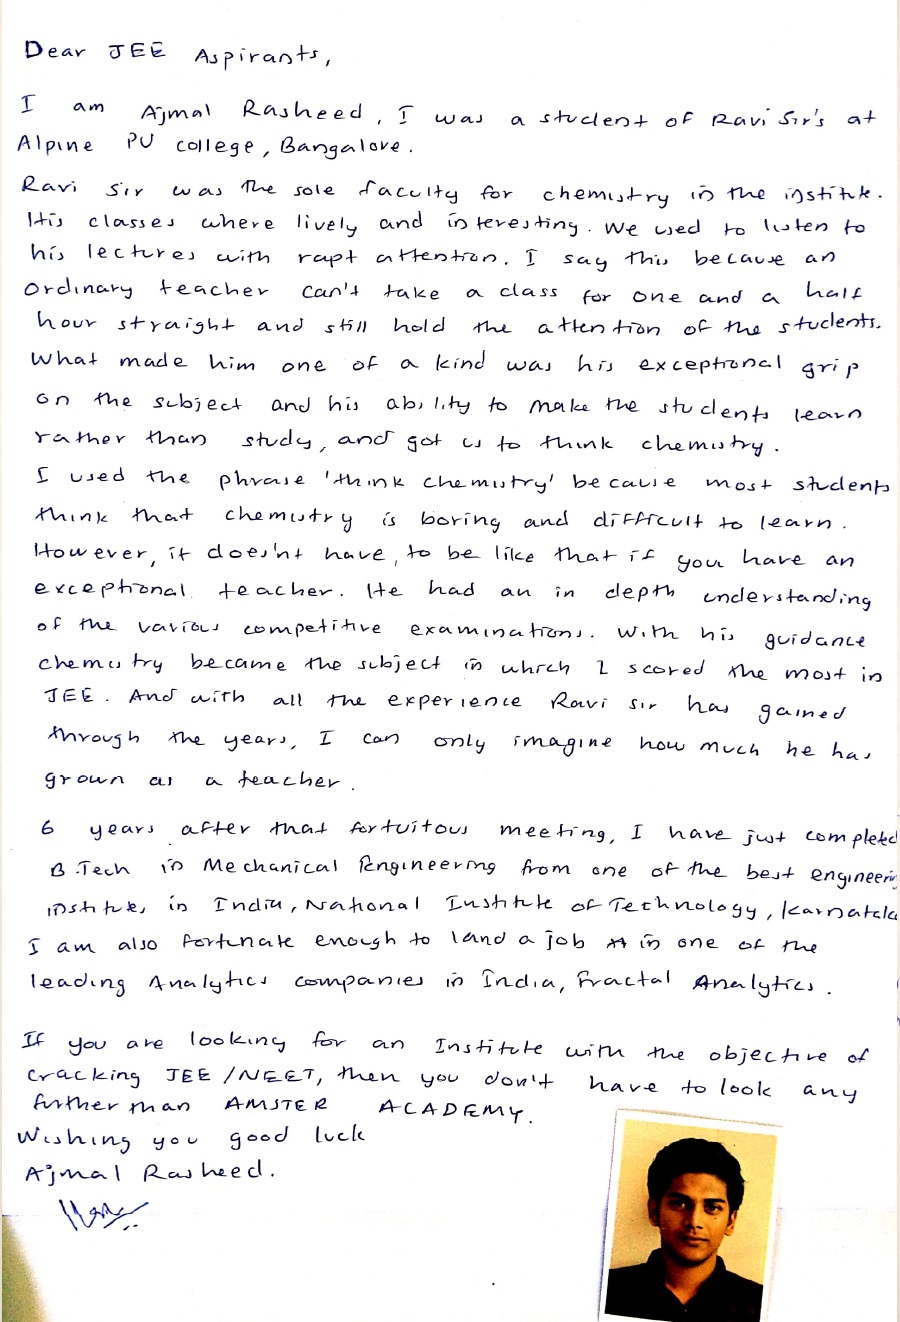 Dear JEE Aspirants,
I am Ajmal Rasheed, I was a student of Ravi Sir's at
Alpine PU college, Bangalore.
Ravi Sir was the sole faculty for chemistry in the institute.
His classes where lively and interesting. We used to listen to
his lectures with rapt attention. I say this because an
ordinary teacher can't take a class for one and a half
hour straight and still hold the attention of the students.
What made him one of a kind was his exceptional grip
on the subject and his ability to make the students learn
rather than study, and got us to think chemistry.
I used the phrase 'think chemistry' because most students
think that chemistry is boring and difficult to learn.
However, it does'nt have, to be like that if you have an
exceptional teacher. He had an in depth understanding
of the various competitive examinations. With his guidance
chemistry became the subject in which I scored the most in
JEE. And with all the experience Ravi sir has gained
through the years, I can only imagine how much he has
grown as a teacher.
6 years after that fortuitous meeting, I have just completed
B.Tech in Mechanical Engineering from one of the best engineering
institutes in India, National Institute of Technology, Karnataka
I am also fortunate enough to land a job in one of the
leading Analytics companies in India, Fractal Analytics.
If you are looking for an Institute with the objective of
cracking JEE/NEET, then you don't have to look any
further than AMSTER ACADEMY.
Wishing you good luck
Ajmal Rasheed.